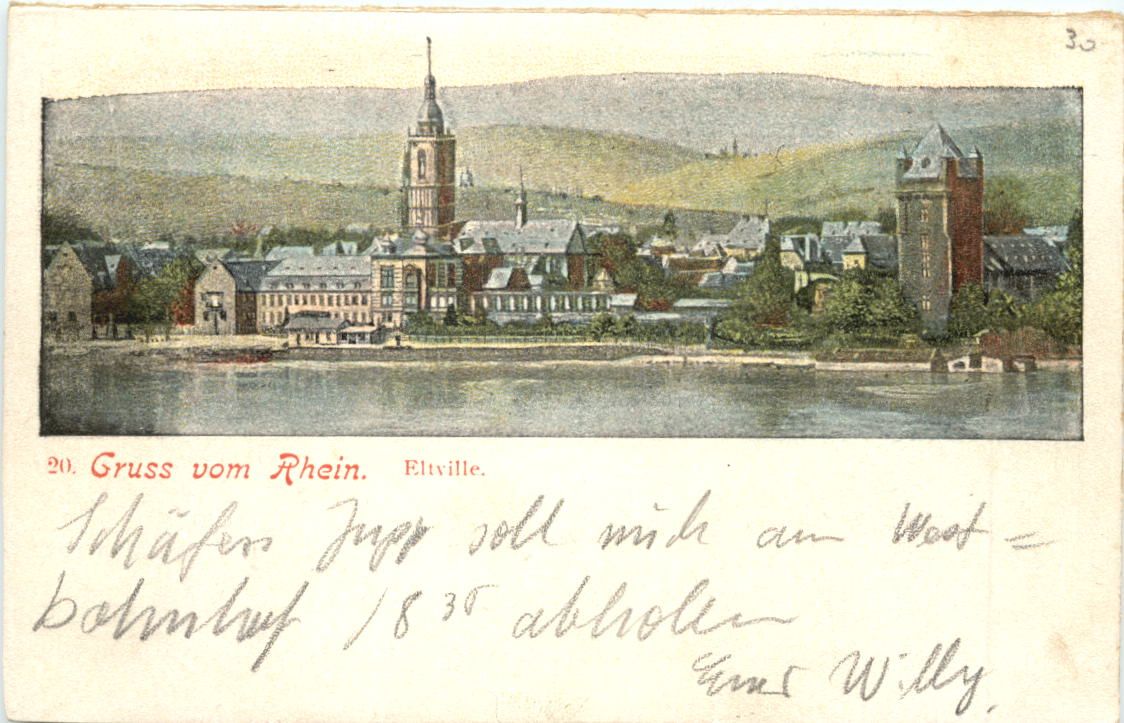 30
20. Gruss vom Rhein. Eltville.
Schäfers Jupp soll mich am West-
bahnhof 18 30 abholen
Euer Willy.